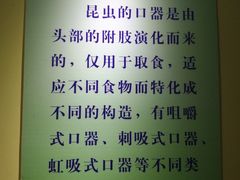 昆虫的口器是由
头部的附肢演化而来
的，仅用于取食，适
应不同食物而特化成
不同的构造，有咀嚼
式口器、刺吸式口器、
虹吸式口器等不同类